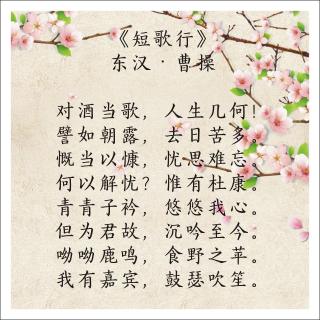 《短歌行》
东汉·曹操
对酒当歌，人生几何！
譬如朝露，去日苦多。
慨当以慷，忧思难忘。
何以解忧？惟有杜康。
青青子衿，悠悠我心。
但为君故，沉吟至今。
呦呦鹿鸣，食野之苹。
我有嘉宾，鼓瑟吹笙。